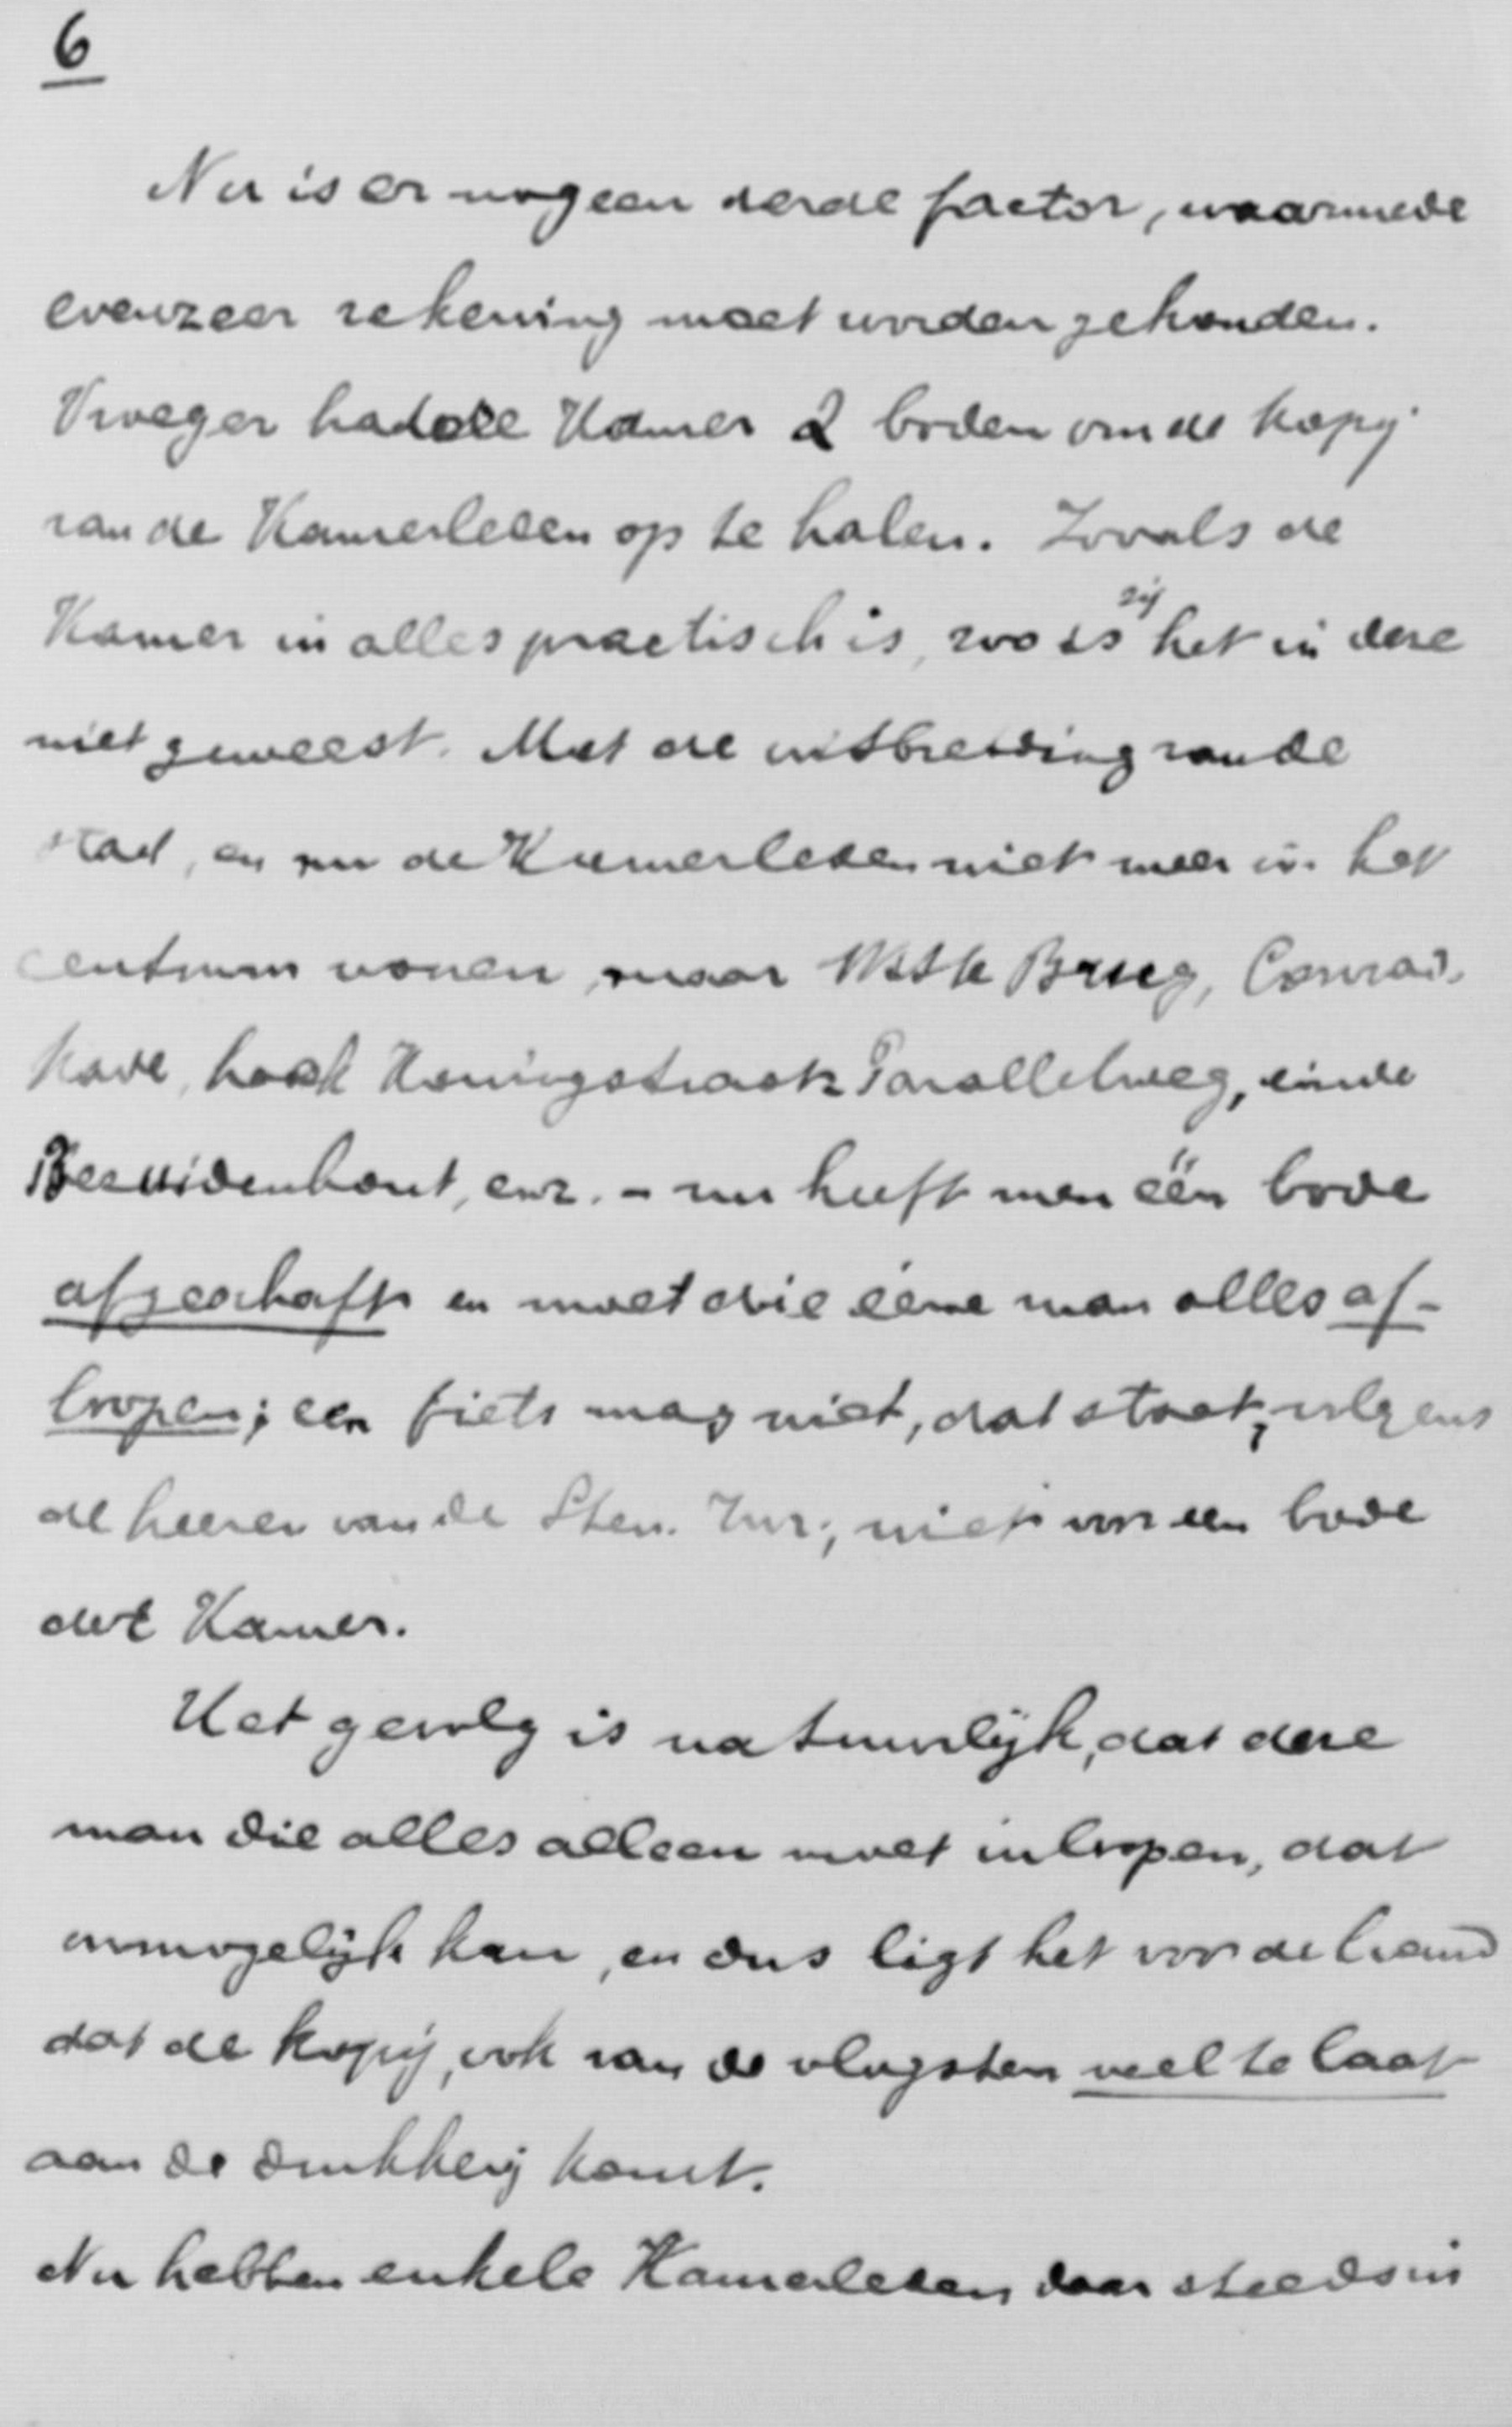 6
Nu is er nog een derde factor, waarmede
evenzeer rekening moet worden gehouden.
Vroeger had de Kamer 2 boden om de kopij
van de Kamerleden op te halen. Zooals de
Kamer in alles practisch is, zoo is zij het in deze
niet geweest. Met de uitbreiding van de
stad, en nu de Kamerleden niet meer in het
centrum wonen, maar Brug, Conrad-
kade, hoek Koningstraat Parallelweg, einde
Bezuidenhout, enz. – nu heeft men één bode
afgeschaft en moet die ééne man alles af-
loopen; een fiets mag niet, dat staat, volgens
de heeren van de Sten. Inr., niet voor een bode
der Kamer.
Het gevolg is natuurlijk, dat deze
man die alles alleen moet inloopen, dat
onmogelijk kan, en dus ligt het voor de hand
dat de kopij, ook van de vlugsten veel te laat
aan de drukkerij komt.
Nu hebben enkele Kamerleden daar steeds in